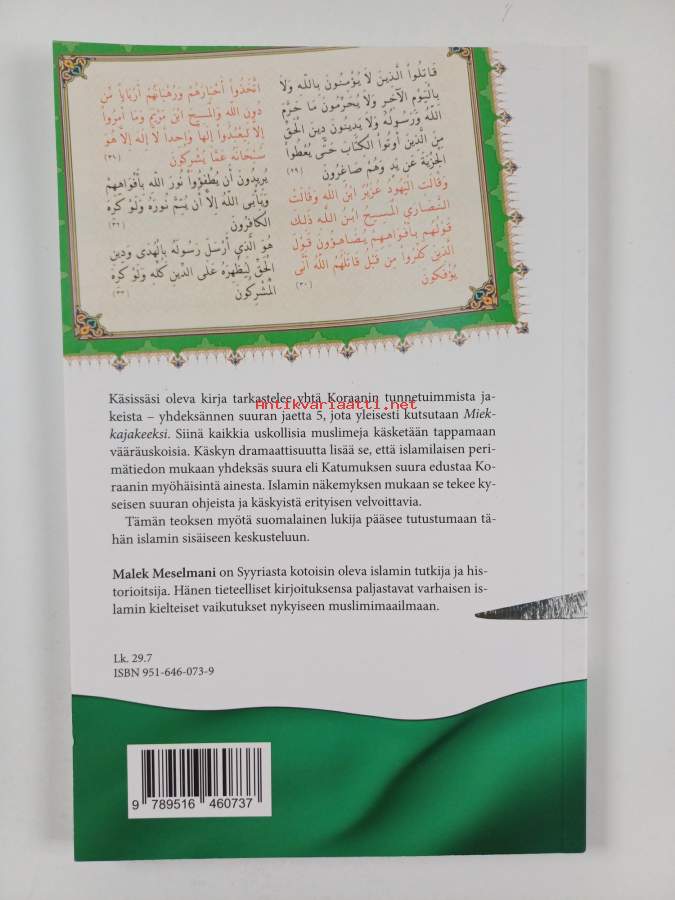 قَاتِلُواْ الَّذِينَ لاَ يُؤْمِنُونَ بِاللّهِ وَلاَ
بِالْيَوْمِ الآخِرِ وَلاَ يُحَرِّمُونَ مَا حَرَّمَ
اللّهُ وَرَسُولُهُ وَلاَ يَدِينُونَ دِينَ الْحَقِّ
مِنَ الَّذِينَ أُوتُواْ الْكِتَابَ حَتَّى يُعْطُواْ
الْجِزْيَةَ عَن يَدٍ وَهُمْ صَاغِرُونَ (٢٩)
وَقَالَتِ الْيَهُودُ عُزَيْرٌ ابْنُ اللّهِ وَقَالَتْ
النَّصَارَى الْمَسِيحُ ابْنُ اللّهِ ذَلِكَ
قَوْلُهُم بِأَفْوَاهِهِمْ يُضَاهِؤُونَ قَوْلَ
الَّذِينَ كَفَرُواْ مِن قَبْلُ قَاتَلَهُمُ اللّهُ أَنَّى
يُؤْفَكُونَ (٣٠)
اتَّخَذُواْ أَحْبَارَهُمْ وَرُهْبَانَهُمْ أَرْبَابًا مِّن
دُونِ اللّهِ وَالْمَسِيحَ ابْنَ مَرْيَمَ وَمَا أُمِرُواْ
إِلاَّ لِيَعْبُدُواْ إِلَهًا وَاحِدًا لاَّ إِلَهَ إِلاَّ هُوَ
سُبْحَانَهُ عَمَّا يُشْرِكُونَ (٣١)
يُرِيدُونَ أَن يُطْفِؤُواْ نُورَ اللّهِ بِأَفْوَاهِهِمْ
وَيَأْبَى اللّهُ إِلاَّ أَن يُتِمَّ نُورَهُ وَلَوْ كَرِهَ
الْكَافِرُونَ (٣٢)
هُوَ الَّذِي أَرْسَلَ رَسُولَهُ بِالْهُدَى وَدِينِ
الْحَقِّ لِيُظْهِرَهُ عَلَى الدِّينِ كُلِّهِ وَلَوْ كَرِهَ
الْمُشْرِكُونَ (٣٣)
Käsissäsi oleva kirja tarkastelee yhtä Koraanin tunnetuimmista ja-
Antikvariaatti.net
keista – yhdeksännen suuran jaetta 5, jota yleisesti kutsutaan Miek-
kajakeeksi. Siinä kaikkia uskollisia muslimeja käsketään tappamaan
vääräuskoisia. Käskyn dramaattisuutta lisää se, että islamilaisen peri-
mätiedon mukaan yhdeksäs suura eli Katumuksen suura edustaa Ko-
raanin myöhäisintä ainesta. Islamin näkemyksen mukaan se tekee ky-
seisen suuran ohjeista ja käskyistä erityisen velvoittavia.
Tämän teoksen myötä suomalainen lukija pääsee tutustumaan tä-
hän islamin sisäiseen keskusteluun.
Malek Meselmani on Syyriasta kotoisin oleva islamin tutkija ja his-
torioitsija. Hänen tieteelliset kirjoituksensa paljastavat varhaisen is-
lamin kielteiset vaikutukset nykyiseen muslimimaailmaan.
Lk. 29.7
ISBN 951-646-073-9
9 789516 460737